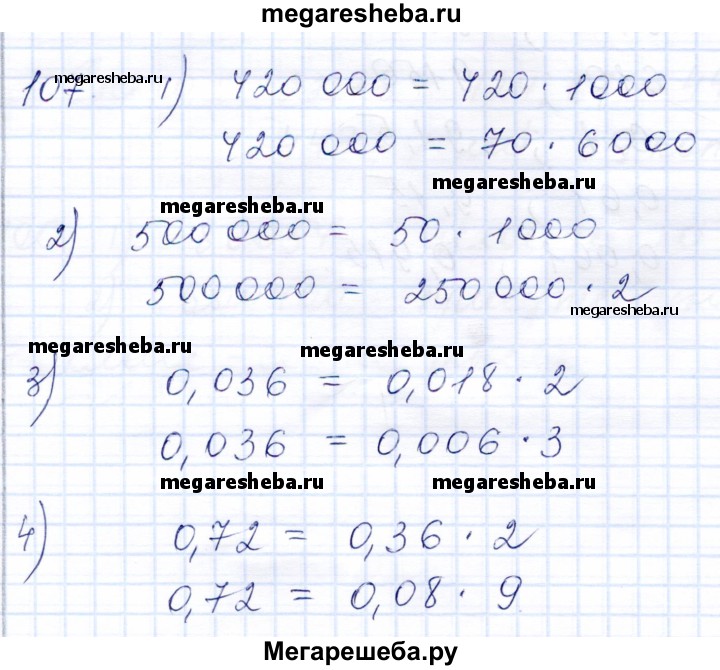 megaresheba.ru
107. megaresheba.ru 1) 420 000 = 420 · 1000
420 000 = 70 · 6000
megaresheba.ru
megaresheba.ru
2) 500 000 = 50 · 1000
500 000 = 250 000 · 2
megaresheba.ru
megaresheba.ru megaresheba.ru
3) 0,036 = 0,018 · 2
0,036 = 0,006 · 3
megaresheba.ru megaresheba.ru
4) 0,72 = 0,36 · 2
0,72 = 0,08 · 9
Мегарешеба.ру